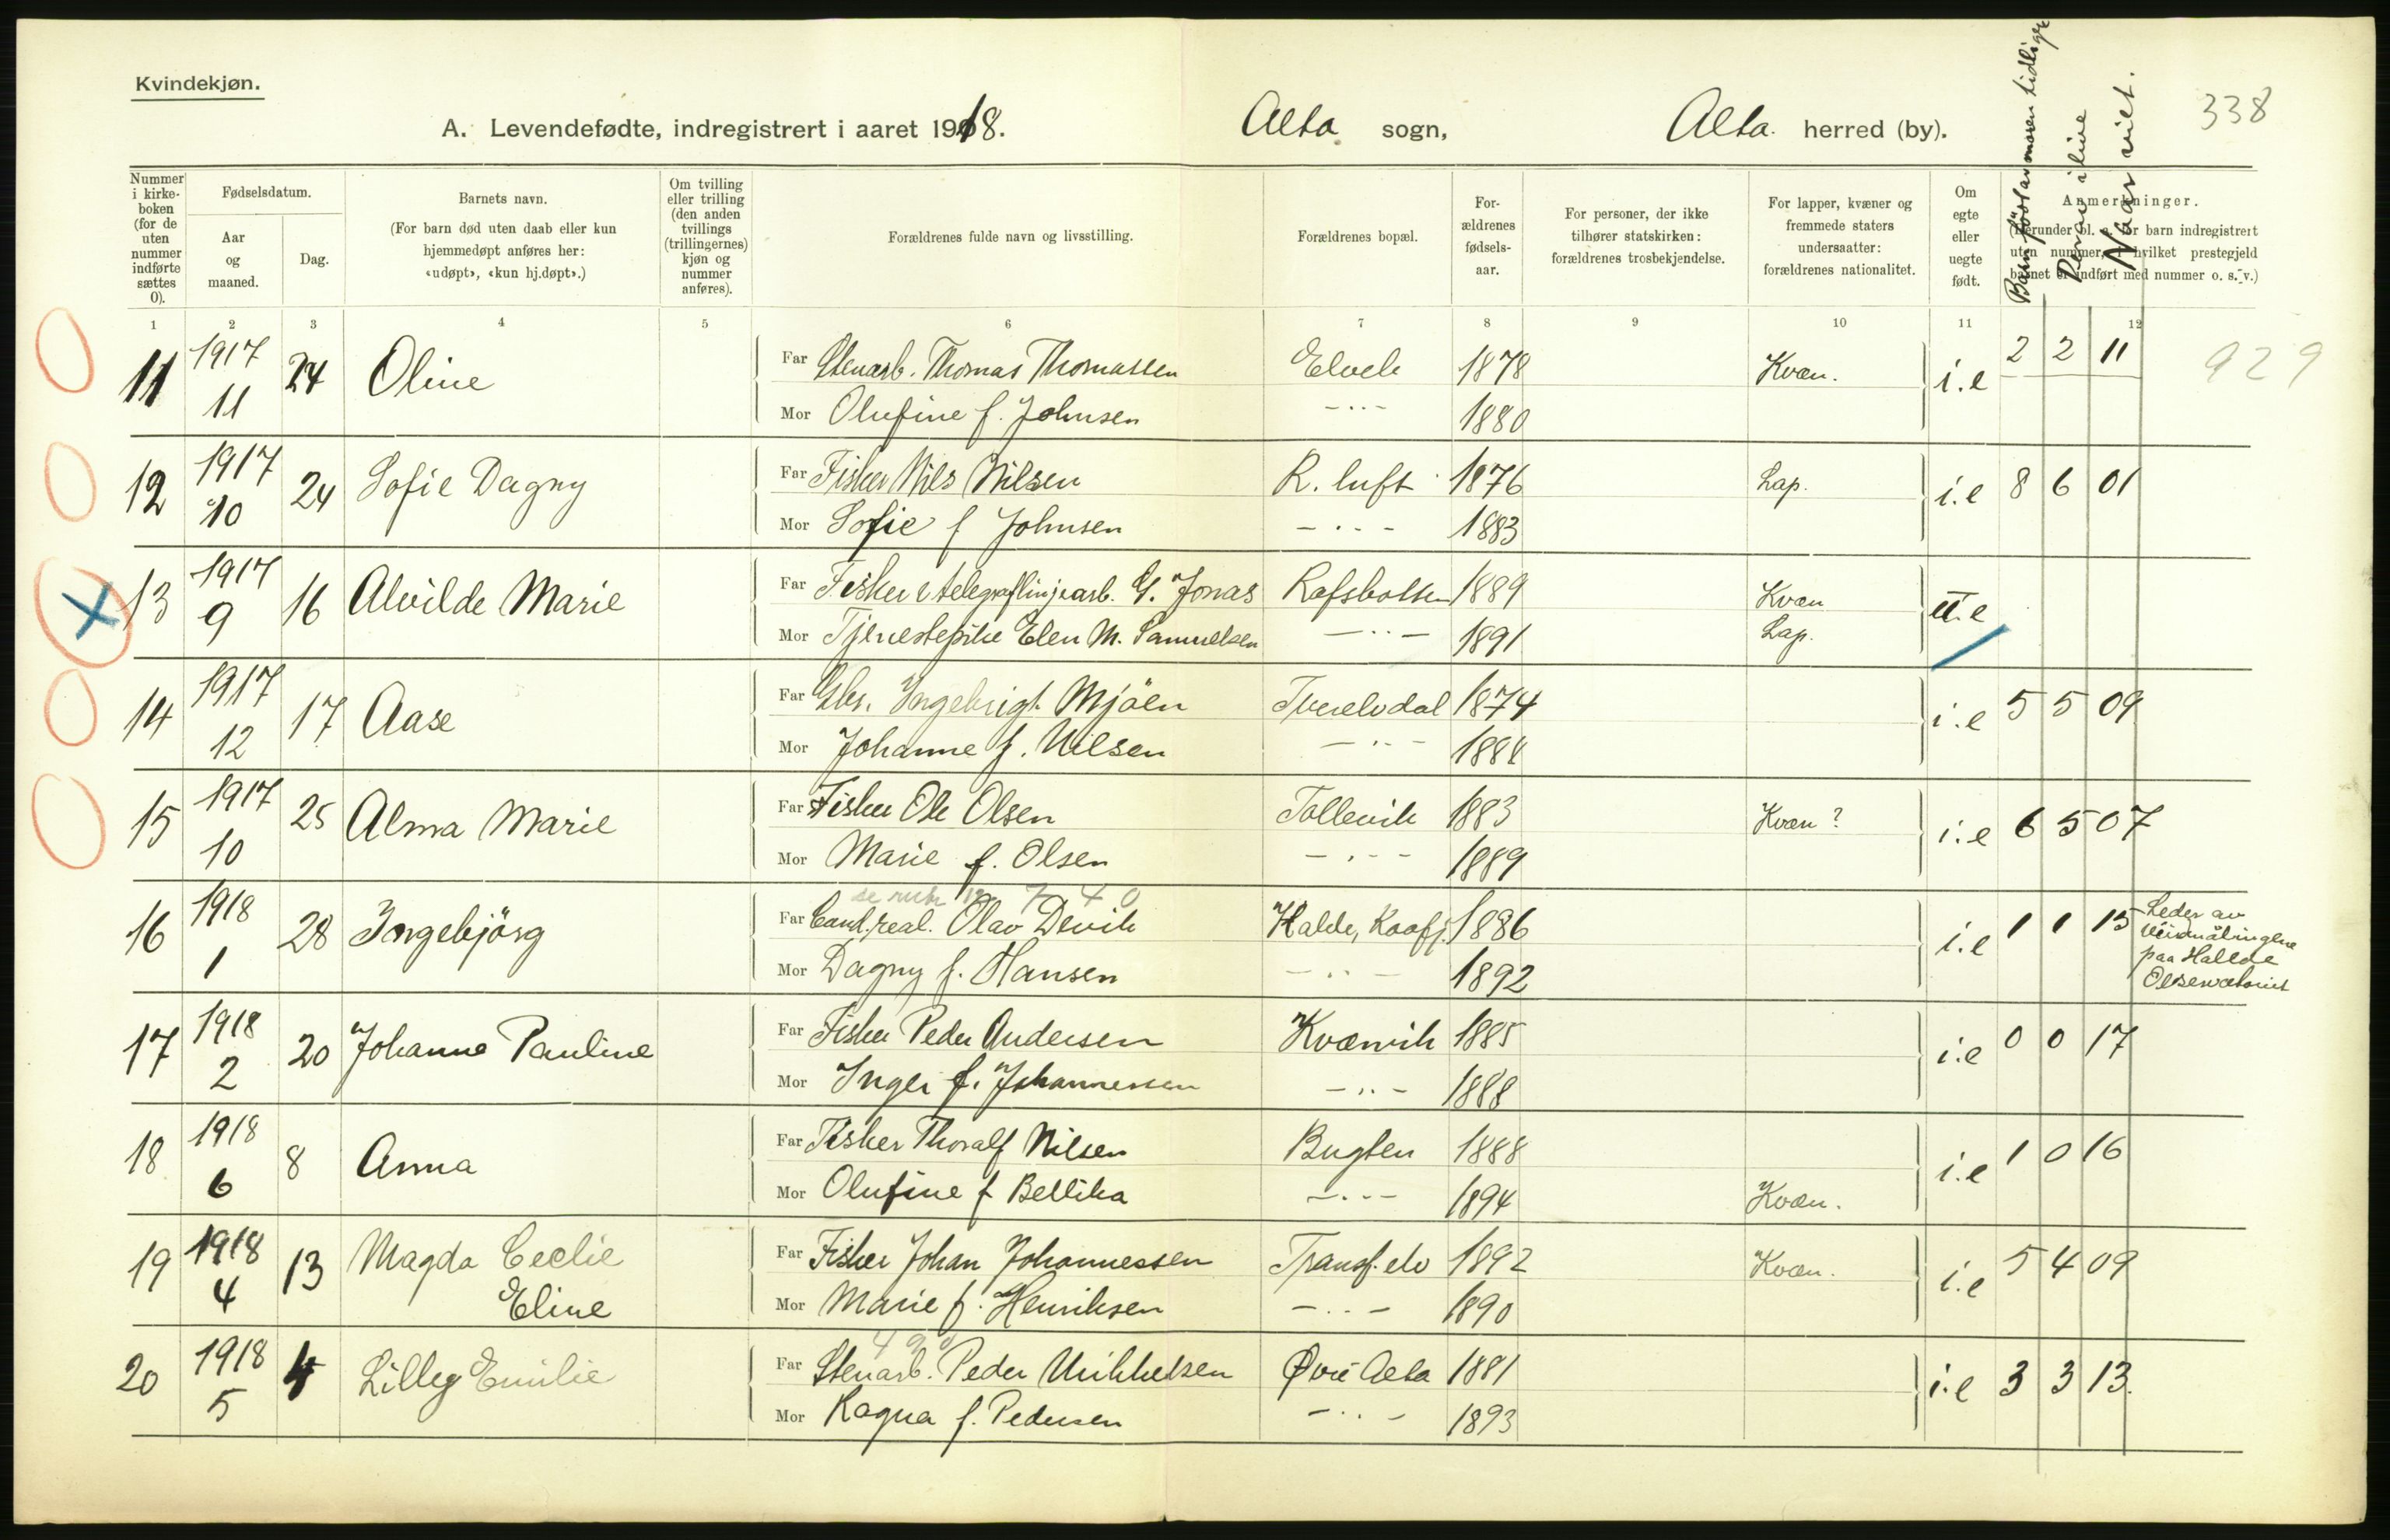 Kvindekjøn.
338
A. Levendefødte, indregistrert i aaret 1918. Alta sogn, Alta herred (by).
Nummer i kirke- boken (for de uten nummer indførte sættes 0).
Fødselsdatum.
Aar og maaned.
Dag.
Barnets navn.
(For barn død uten daab eller kun hjemmedøpt anføres her: «udøpt», «kun hj.døpt».)
Om tvilling eller trilling (den anden tvillings (trillingernes) kjøn og nummer anføres).
Forældrenes fulde navn og livsstilling.
Forældrenes bopæl.
For- ældrenes fødsels- aar.
For personer, der ikke tilhører statskirken: forældrenes trosbekjendelse.
For lapper, kvæner og fremmede staters undersaatter: forældrenes nationalitet.
Om egte eller uegte født.
Anmerkninger.
(Herunder bl. a. for barn indregistrert uten nummer, i hvilket prestegjeld barnet er indført med nummer o. s. v.)
Barn født av moren tidligere
Derav i live
Naar viet.
1 2 3 4 5 6 7 8 9 10 11 12
11 1917 11 24 Oline Far Stenarb. Thomas Thomassen Elveb 1878 Kvæn. i.e 2 2 11 929
Mor Olufine f. Johnsen -"- 1880
12 1917 10 24 Sofie Dagny Far Fisker Nils Nilsen R. luft 1876 Lap. i.e 8 6 01
Mor Sofie f Johnsen -"- 1883
13 1917 9 16 Alvilde Marie Far Fisker & telegraflinjearb. G. Jonas Rafsbotten 1889 Kvæn u.e
Mor Tjenestepike Elen M. Samuelsen -"- 1891 Lap.
14 1917 12 17 Aase Far Gbr. Ingebrigt Mjöen Tverelvdal 1874 i.e 5 5 09
Mor Johanne f. Nilsen -"- 1884
15 1917 10 25 Alma Marie Far Fisker Ole Olsen Tollevik 1883 Kvæn? i.e 6 5 07
Mor Marie f. Olsen -"- 1889
se rubr 12 7 4 0
16 1918 1 28 Ingebjörg Far Cand. real. Olav Devik Halde, Kaafj. 1886 i.e 1 1 15 Leder av
Mor Dagny f. Hansen -"- 1892 paa Halde Observatoriet
17 1918 2 20 Johanne Pauline Far Fisker Peder Andersen Kvænvik 1885 i.e 0 0 17
Mor Inger f. Johannessen -"- 1888
18 1918 6 8 Anna Far Fisker Thoralf Nilsen Bugten 1888 i.e 1 0 16
Mor Olufine f Bellika -"- 1894 Kvæn.
19 1918 4 13 Magda Cecilie Far Fisker Johan Johannessen Transf. elv 1892 Kvæn. i.e 5 4 09
Eline Mor Marie f. Henriksen -"- 1890
20 1918 5 4 Lilly Emilie Far Stenarb. Peder Mikkelsen Øvre Alta 1881 i.e 3 3 13.
Mor Ragna f. Pedersen -"- 1893